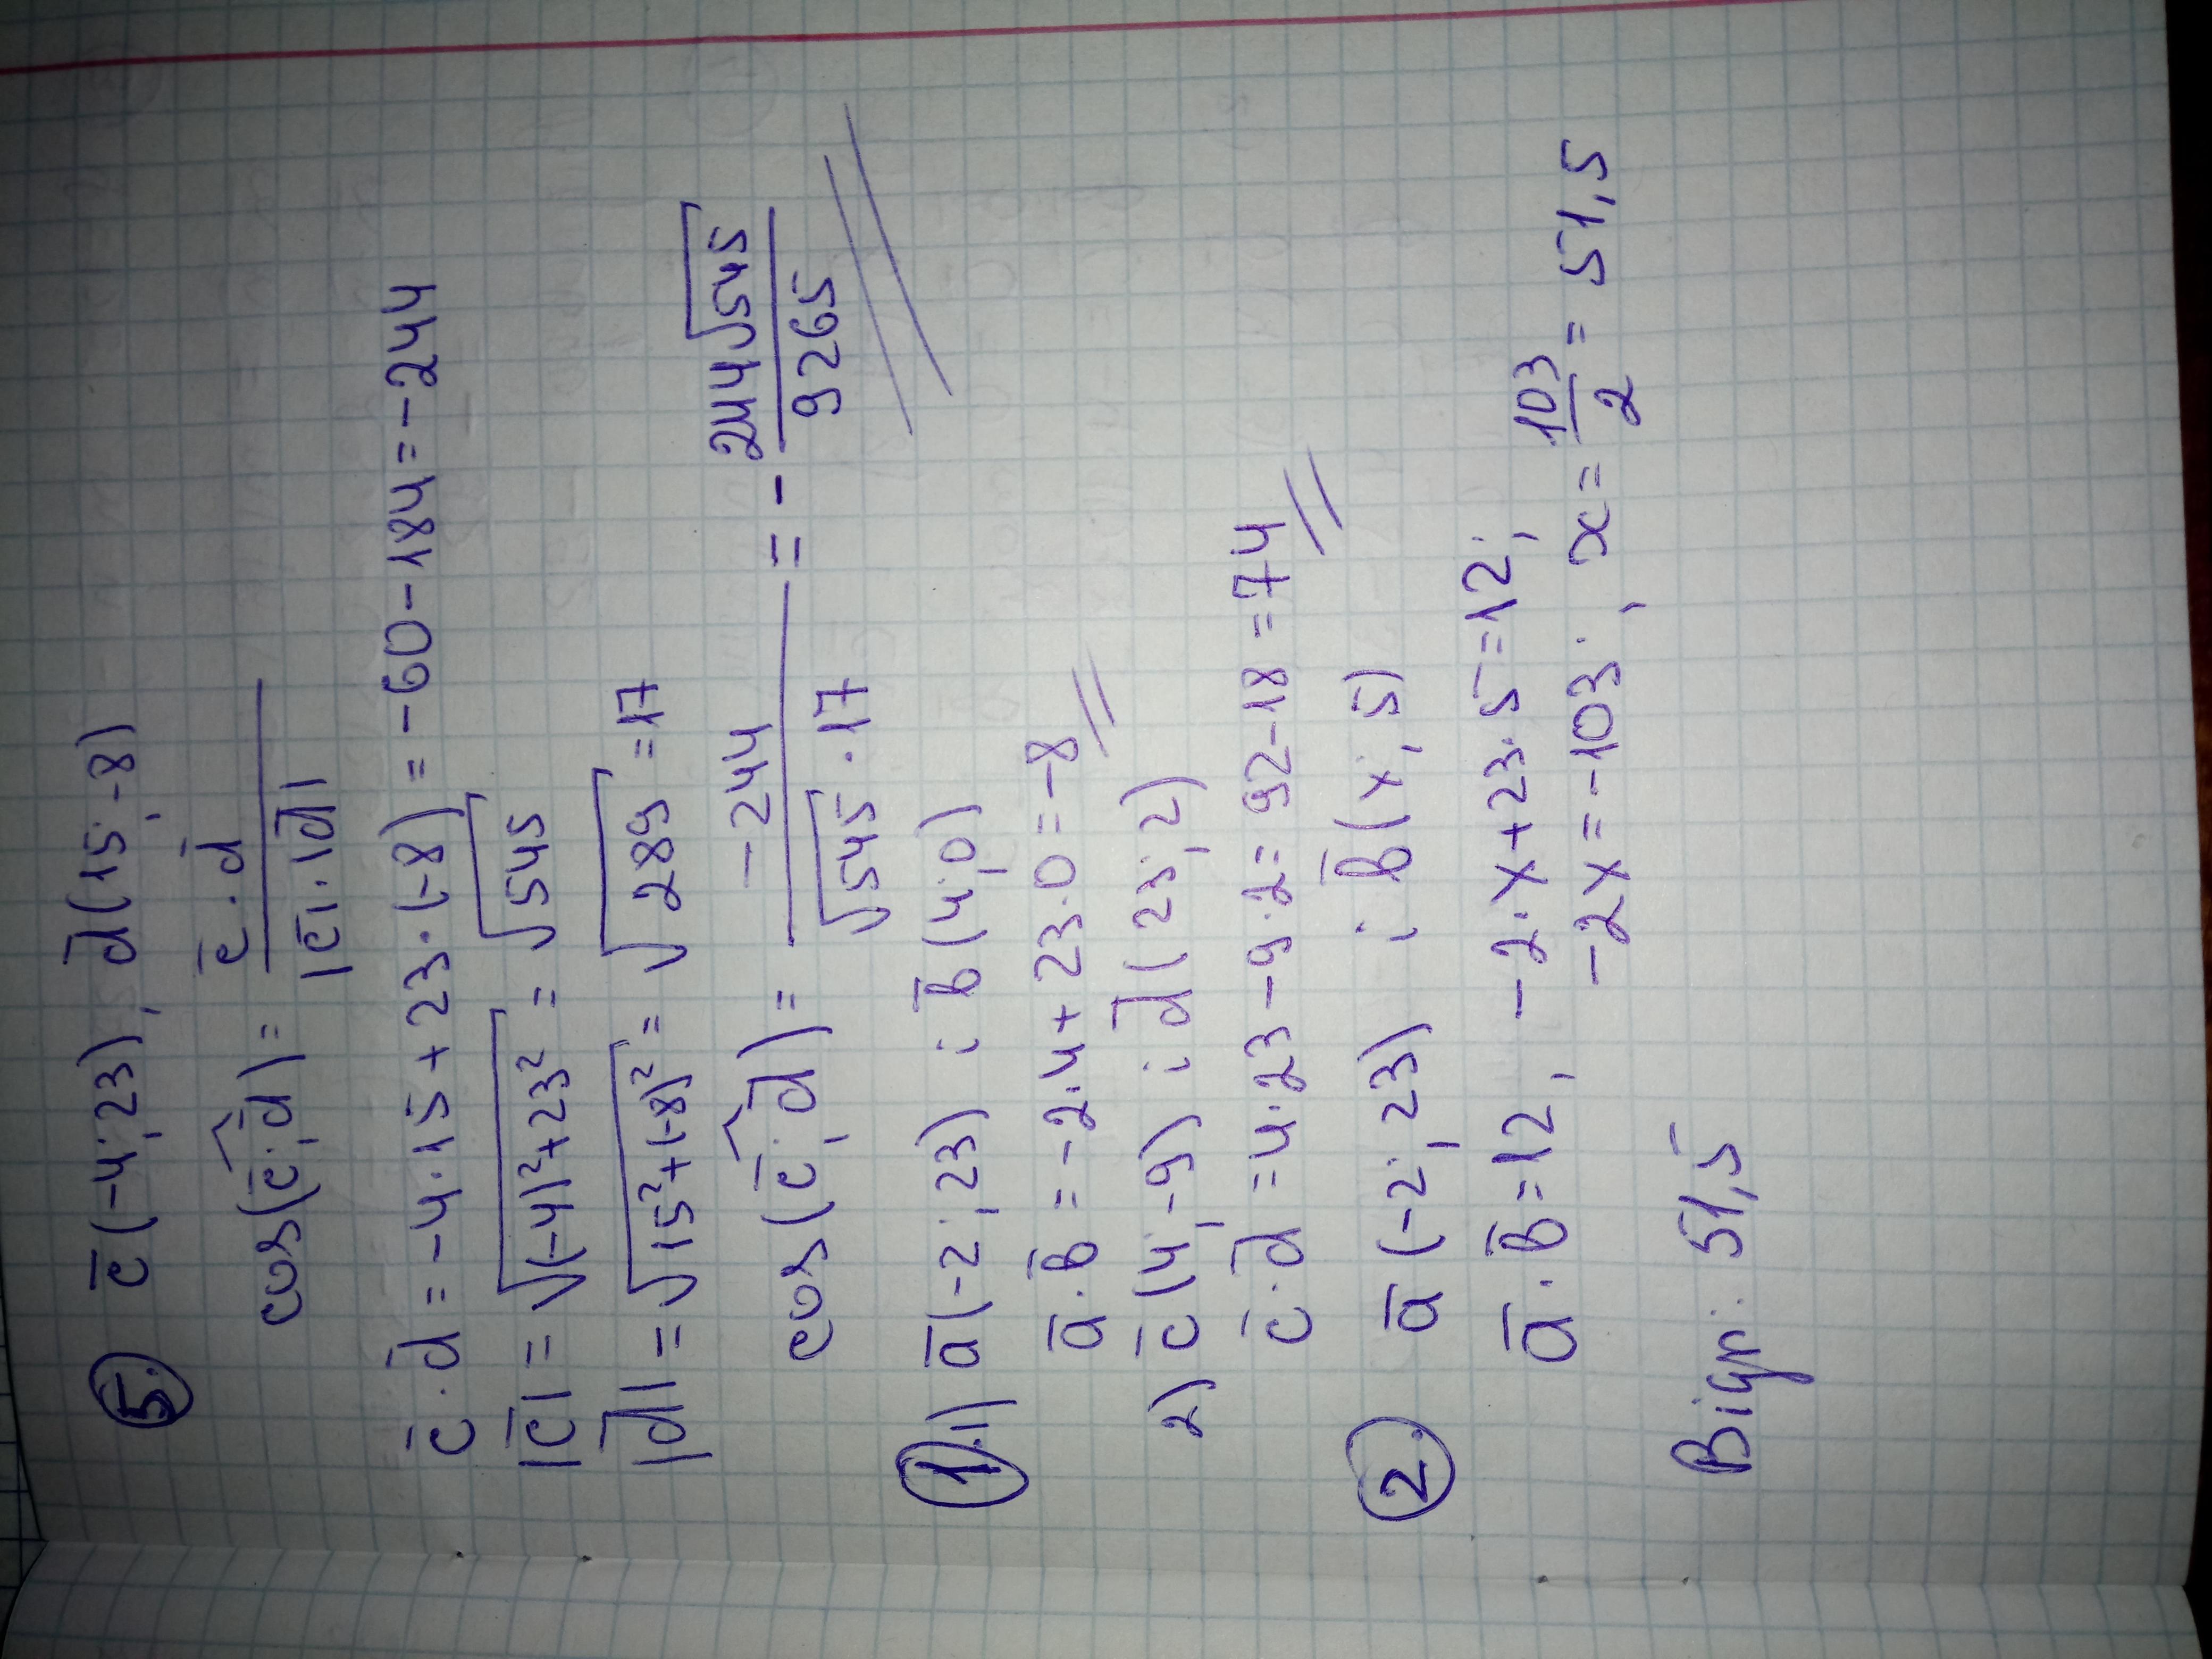 5. c̄(-4; 23); d̄(15; -8)
cos(c̄; d̄) = c̄ · d̄ / |c̄| · |d̄|
c̄ · d̄ = -4 · 15 + 23 · (-8) = -60 - 184 = -244
|c̄| = √(-4)² + 23² = √545
|d̄| = √15² + (-8)² = √289 = 17
cos(c̄; d̄) = -244 / √545 · 17 = - 244√545 / 9265
1. 1) ā(-2; 23) ; b̄(4; 0)
ā · b̄ = -2 · 4 + 23 · 0 = -8
2) c̄(4; -9) ; d̄(23; 2)
c̄ · d̄ = 4 · 23 - 9 · 2 = 92 - 18 = 74
2. ā(-2; 23) ; b̄(x; 5)
ā · b̄ = 12; -2 · x + 23 · 5 = 12;
-2x = -103; x = 103/2 = 51,5
Відп: 51,5